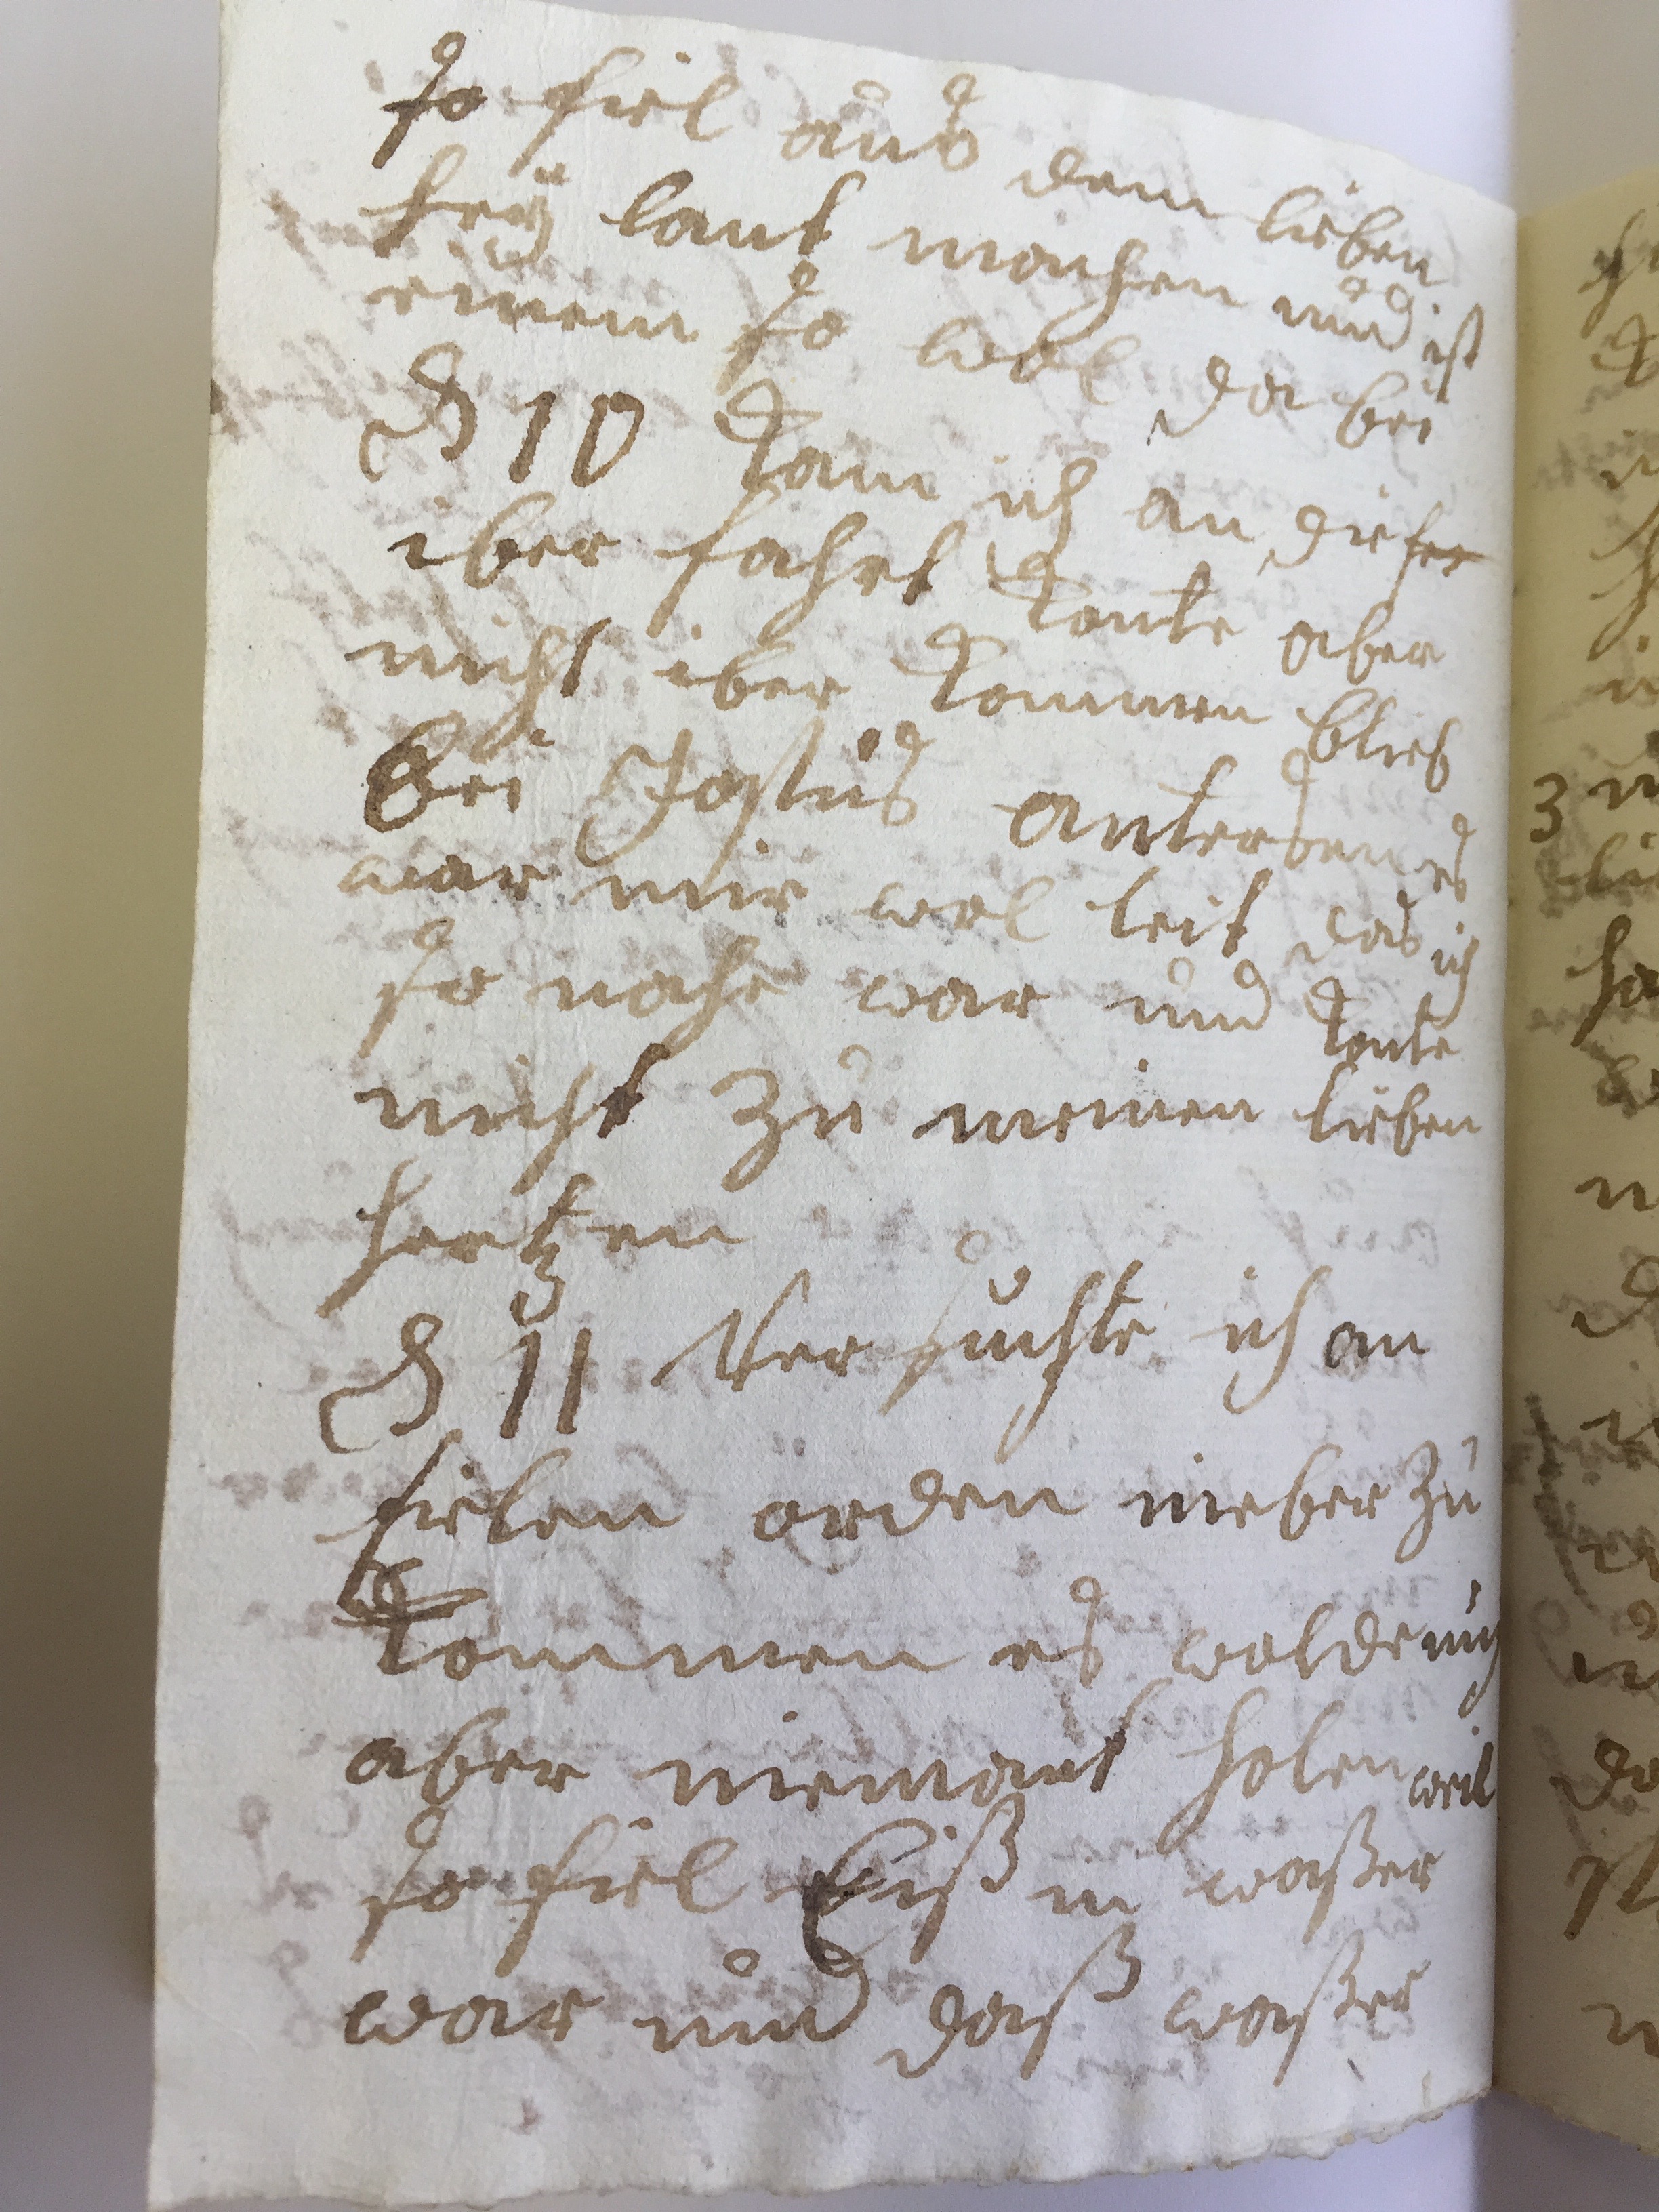 so fiel aus dem lieben
heÿ lant machen und ist
einem so wol da bei
d 10 kam ich an die
iber fahrt konte aber
nicht iber kommen blieb
bei Jostus antersen es
war mir wol leit das ich
so nahe war und konte
nicht zu meinen lieben
hertzen
d 11 Versuchte ich an
fielen orden nieber zu
kommen es wolde mich
aber niemant holen weil
so fiel Eiß in waßer
war und daß waßer